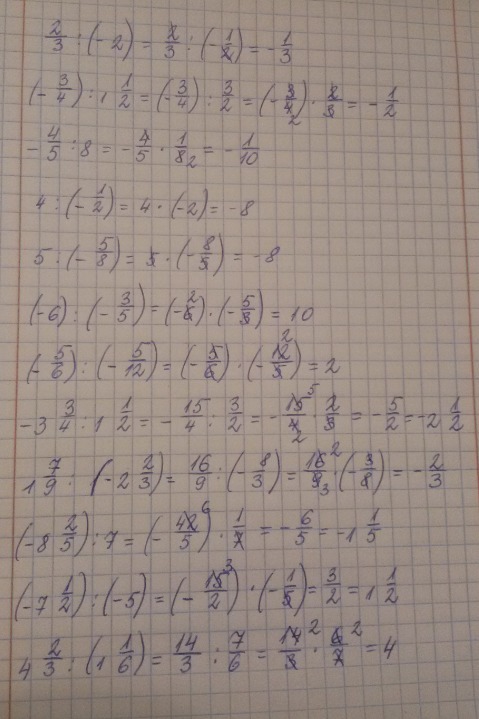 2/3 : (-2) = 2/3 : (-1/2) = -1/3
(-3/4) : 1 1/2 = (-3/4) : 3/2 = (-3/4 2) · 2/3 = -1/2
-4/5 : 8 = -4/5 · 1/8 2 = -1/10
4 : (-1/2) = 4 · (-2) = -8
5 : (-5/8) = 5 · (-8/5) = -8
(-6) : (-3/5) = (-6 2) · (-5/3) = 10
(-5/6) : (-5/12) = (-5/6) · (-12 2/5) = 2
-3 3/4 : 1 1/2 = -15/4 : 3/2 = -15 5/4 2 · 2/3 = -5/2 = -2 1/2
1 7/9 : (-2 2/3) = 16/9 : (-8/3) = 16 2/9 3 (-3/8) = -2/3
(-8 2/5) : 7 = (-42 6/5) · 1/7 = -6/5 = -1 1/5
(-7 1/2) : (-5) = (-15 3/2) · (-1/5) = 3/2 = 1 1/2
4 2/3 : (1 1/6) = 14/3 : 7/6 = 14 2/3 · 6 2/7 = 4